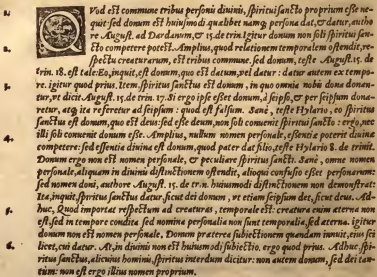 1. QVod est commune tribus personis diuinis, spiritui sancto proprium esse ne-
quit: sed donum est huiusmodi, qualibet namq; persona dat, & datur, autho
re August. ad Dardanum, & 15. de trin. Igitur donum non soli spiritui san-
2. cto competere potest. Amplius, quod relationem temporalem ostendit, re-
spectu creaturarum, est tribus commune, sed donum, teste August. 15. de
trin. 18. est tale: Eo, inquit, est donum, quo est datum, vel datur: datur autem ex tempo-
3. re. igitur quod prius. Item, spiritus sanctus est donum, in quo omnia nobis dona donan-
tur, vt dicit August. 15. de trin. 17. Si ergo ipse esset donum, à seipso, & per seipsum dona-
retur, atq; ita referetur ad seipsum: quod est falsum. Sanè, teste Hylario, eo spiritus
sanctus est donum, quo est deus: sed esse deum, non soli conuenit spiritui sancto: ergo, nec
4. illi soli conuenit donum esse. Amplius, nullum nomen personale, essentiæ poterit diuinæ
competere: sed essentia diuina est donum, quod pater dat filio, teste Hylario 8. de trinit.
Donum ergo non est nomen personale, & peculiare spiritus sancti. Sanè, omne nomen
personale, aliquam in diuinis distinctionem ostendit, alioqui confusio esset personarum:
sed nomen doni, authore August. 15. de trin. huiusmodi distinctionem non demonstrat:
Ita, inquit, spiritus sanctus datur, sicut dei donum, vt etiam seipsum det, sicut deus. Ad-
5. huc, Quod importat respectum ad creaturas, temporale est: creatura enim æterna non
est, sed in tempore condita sed nomina personalia non sunt temporalia, sed æterna. igitur
donum non est nomen personale. Donum præterea subiectionem quandam innuit, eius sci
6. licet, cui datur. At, in diuinis non est huiusmodi subiectio, ergo quod prius. Adhuc, spi-
ritus sanctus, alicuius hominis, spiritus interdum dicitur: non autem donum, sed dei tan-
tùm: non est ergo illius nomen proprium.